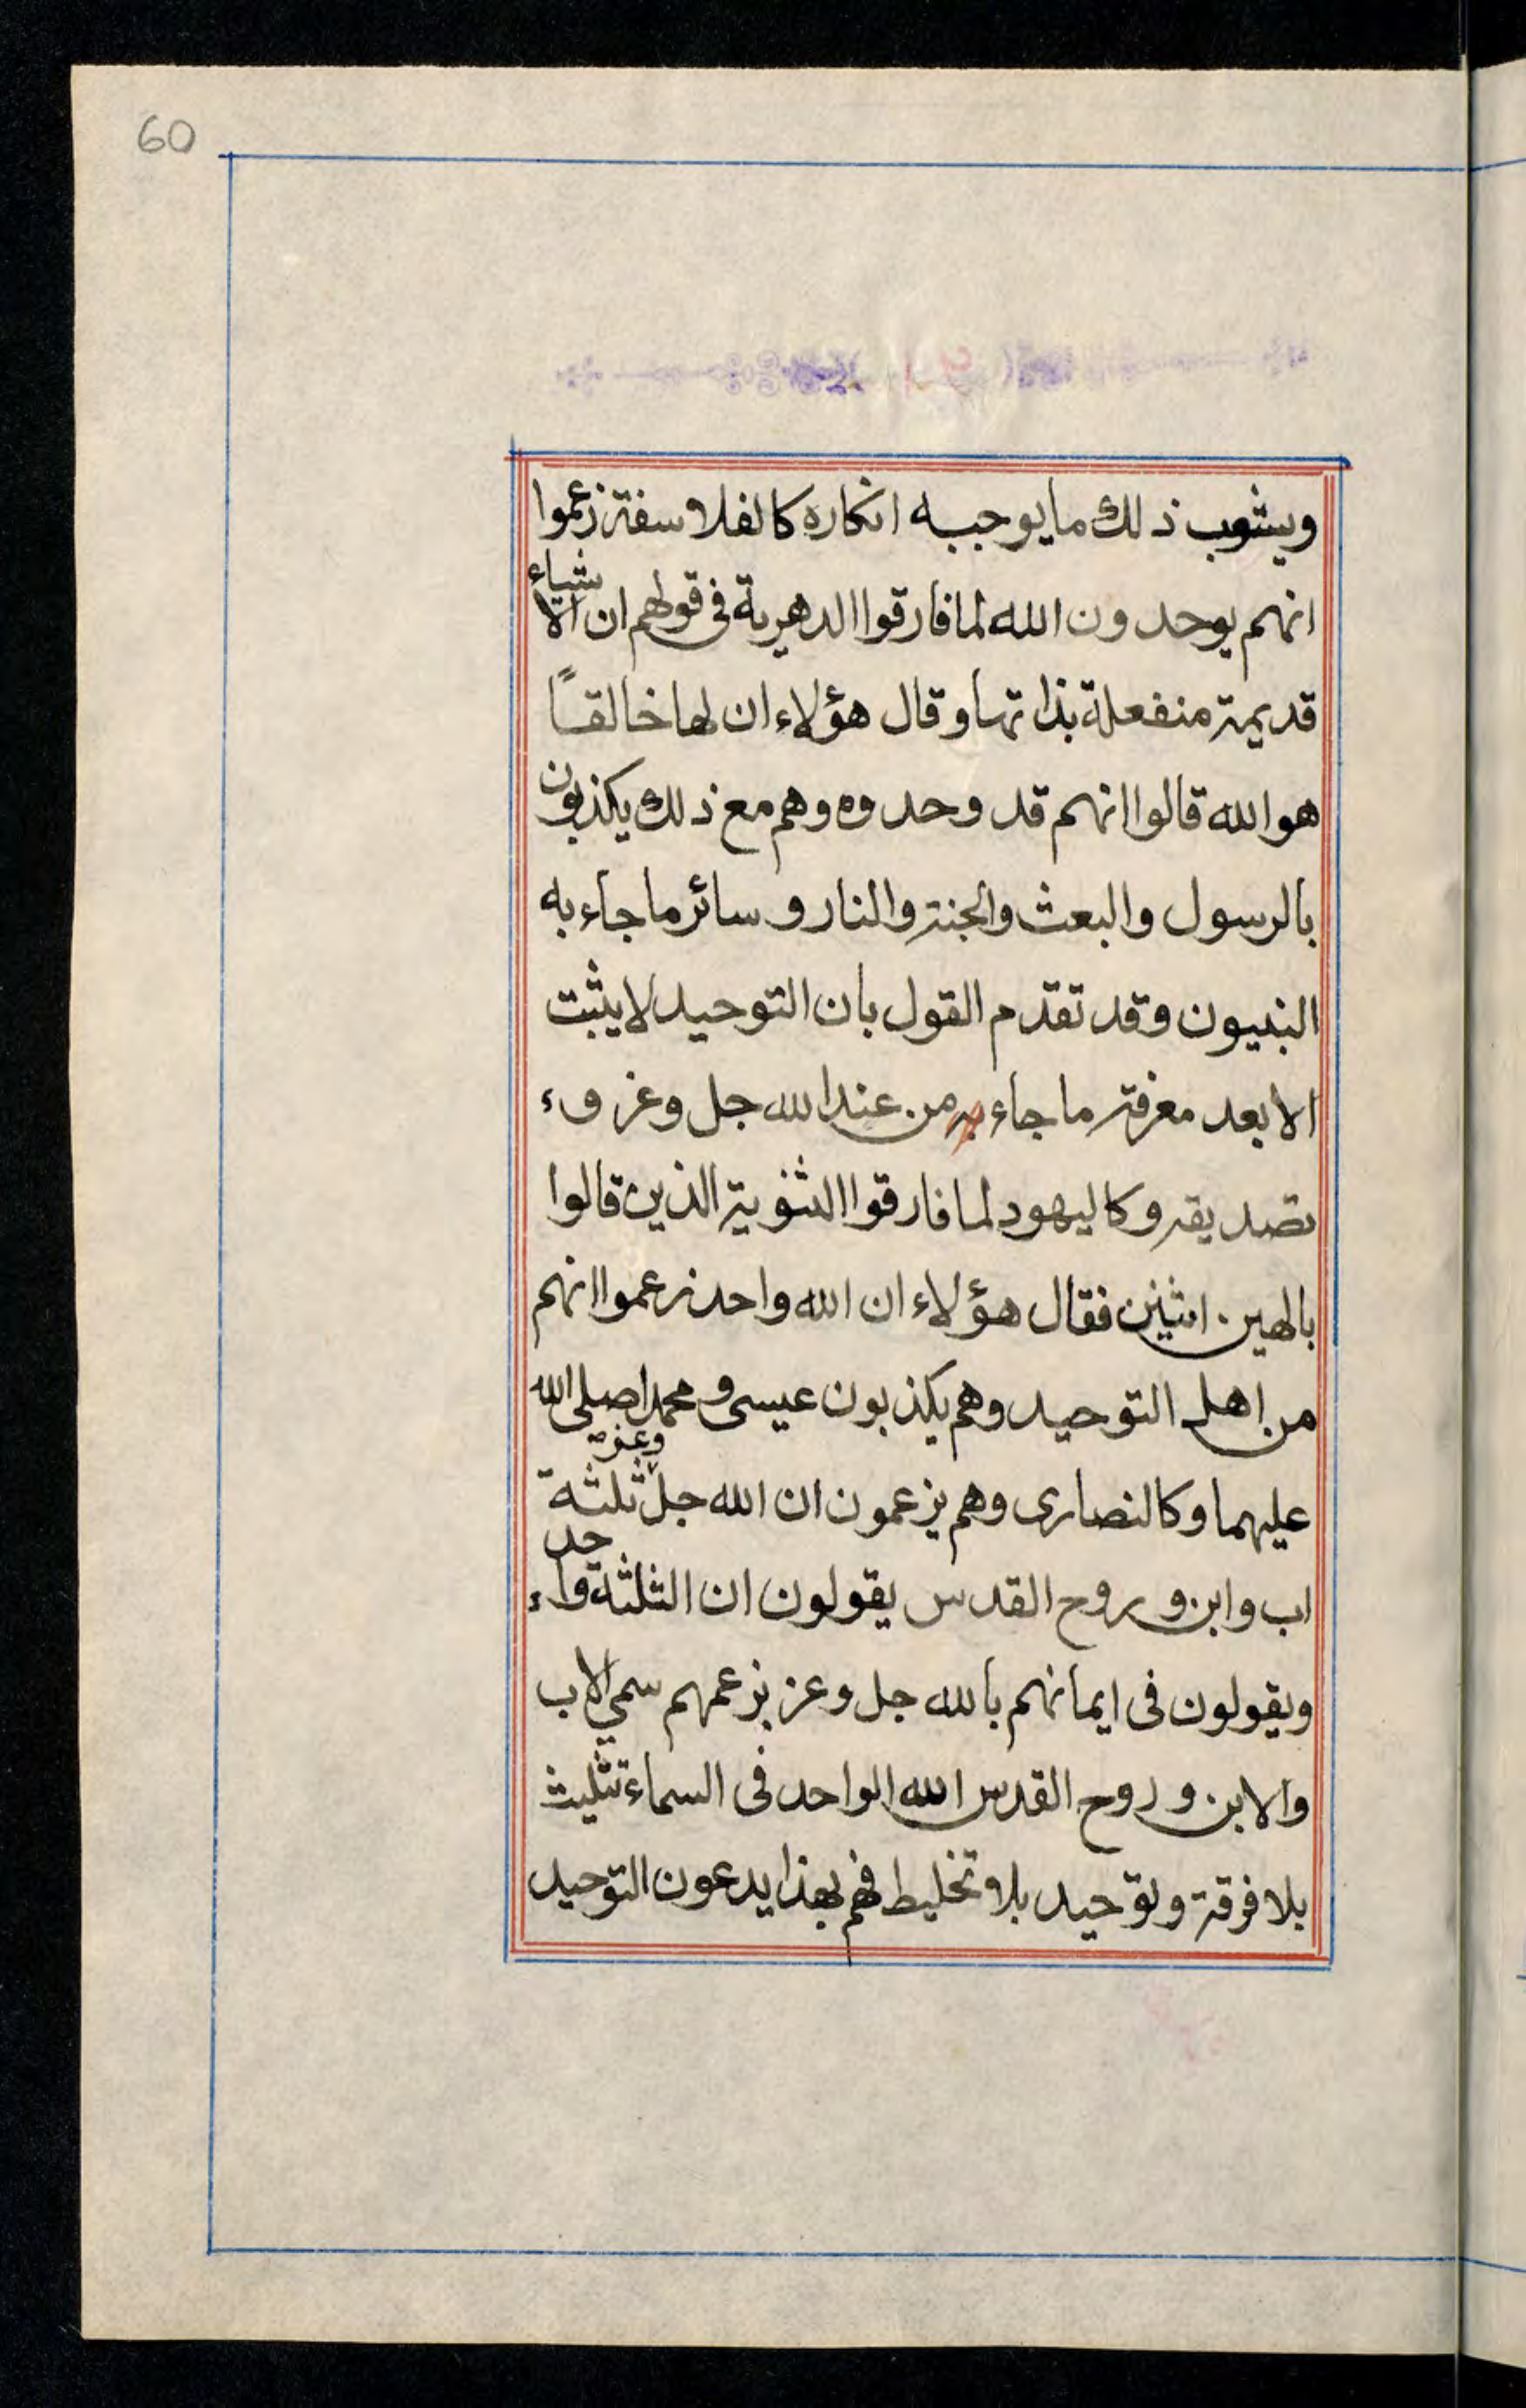 60
ويشوب ذلك ما يوجبه انكاره كالفلاسفة زعموا
انهم يوحدون الله لما فارقوا الدهرية فى قولهم ان الاشياء
قديمة منفعلة بذاتها وقال هؤلاء ان لها خالقًا
هو الله قالوا انهم قد وحدوه وهم مع ذلك يكذبون
بالرسول والبعث والجنة والنار وسائر ما جاء به
النبيون وقد تقدم القول بان التوحيد لا يثبت
الا بعد معرفة ما جاء به من عند الله جل وعز و
تصديقه وكاليهود لما فارقوا الثنوية الذين قالوا
بالهين اثنين فقال هؤلاء ان الله واحد زعموا انهم
من اهل التوحيد وهم يكذبون عيسى و محمدا صلى الله
عليهما وكالنصارى وهم يزعمون ان الله جل وعز ثلثة
اب وابن وروح القدس يقولون ان الثلثة واحد
ويقولون فى ايمانهم بالله جل وعز بزعمهم سمي الاب
والابن وروح القدس الله الواحد فى السماء تثليث
بلا فرقة وتوحيد بلا تخليط فهم بهذا يدعون التوحيد